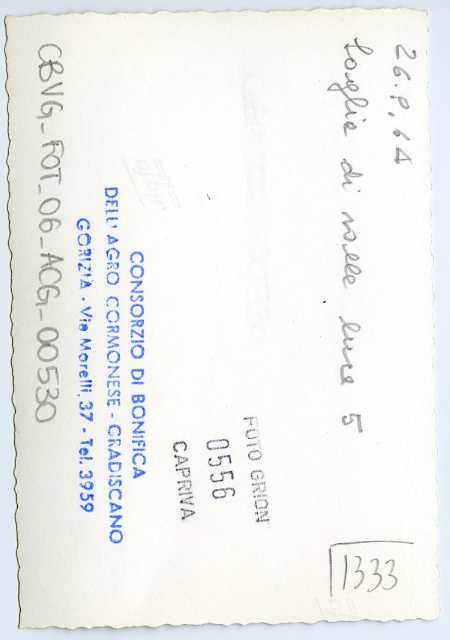 26.8.64
Soglia di valle luce 5
1333
FOTO GRION
0556
CAPRIVA
CONSORZIO DI BONIFICA
DELL' AGRO CORMONESE - GRADISCANO
GORIZIA - Via Morelli, 37 - Tel. 3959
CBVG_FOT_06_ACG_00530